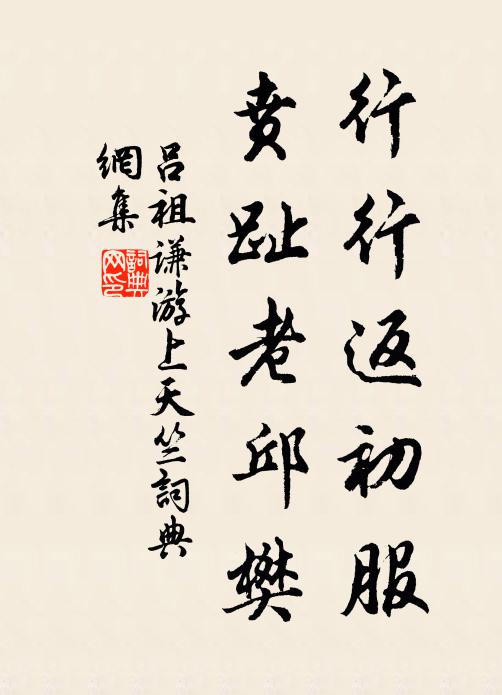 行行返初服
賁趾老邱樊
呂祖谦游上天竺詞典
網集
詞典网印